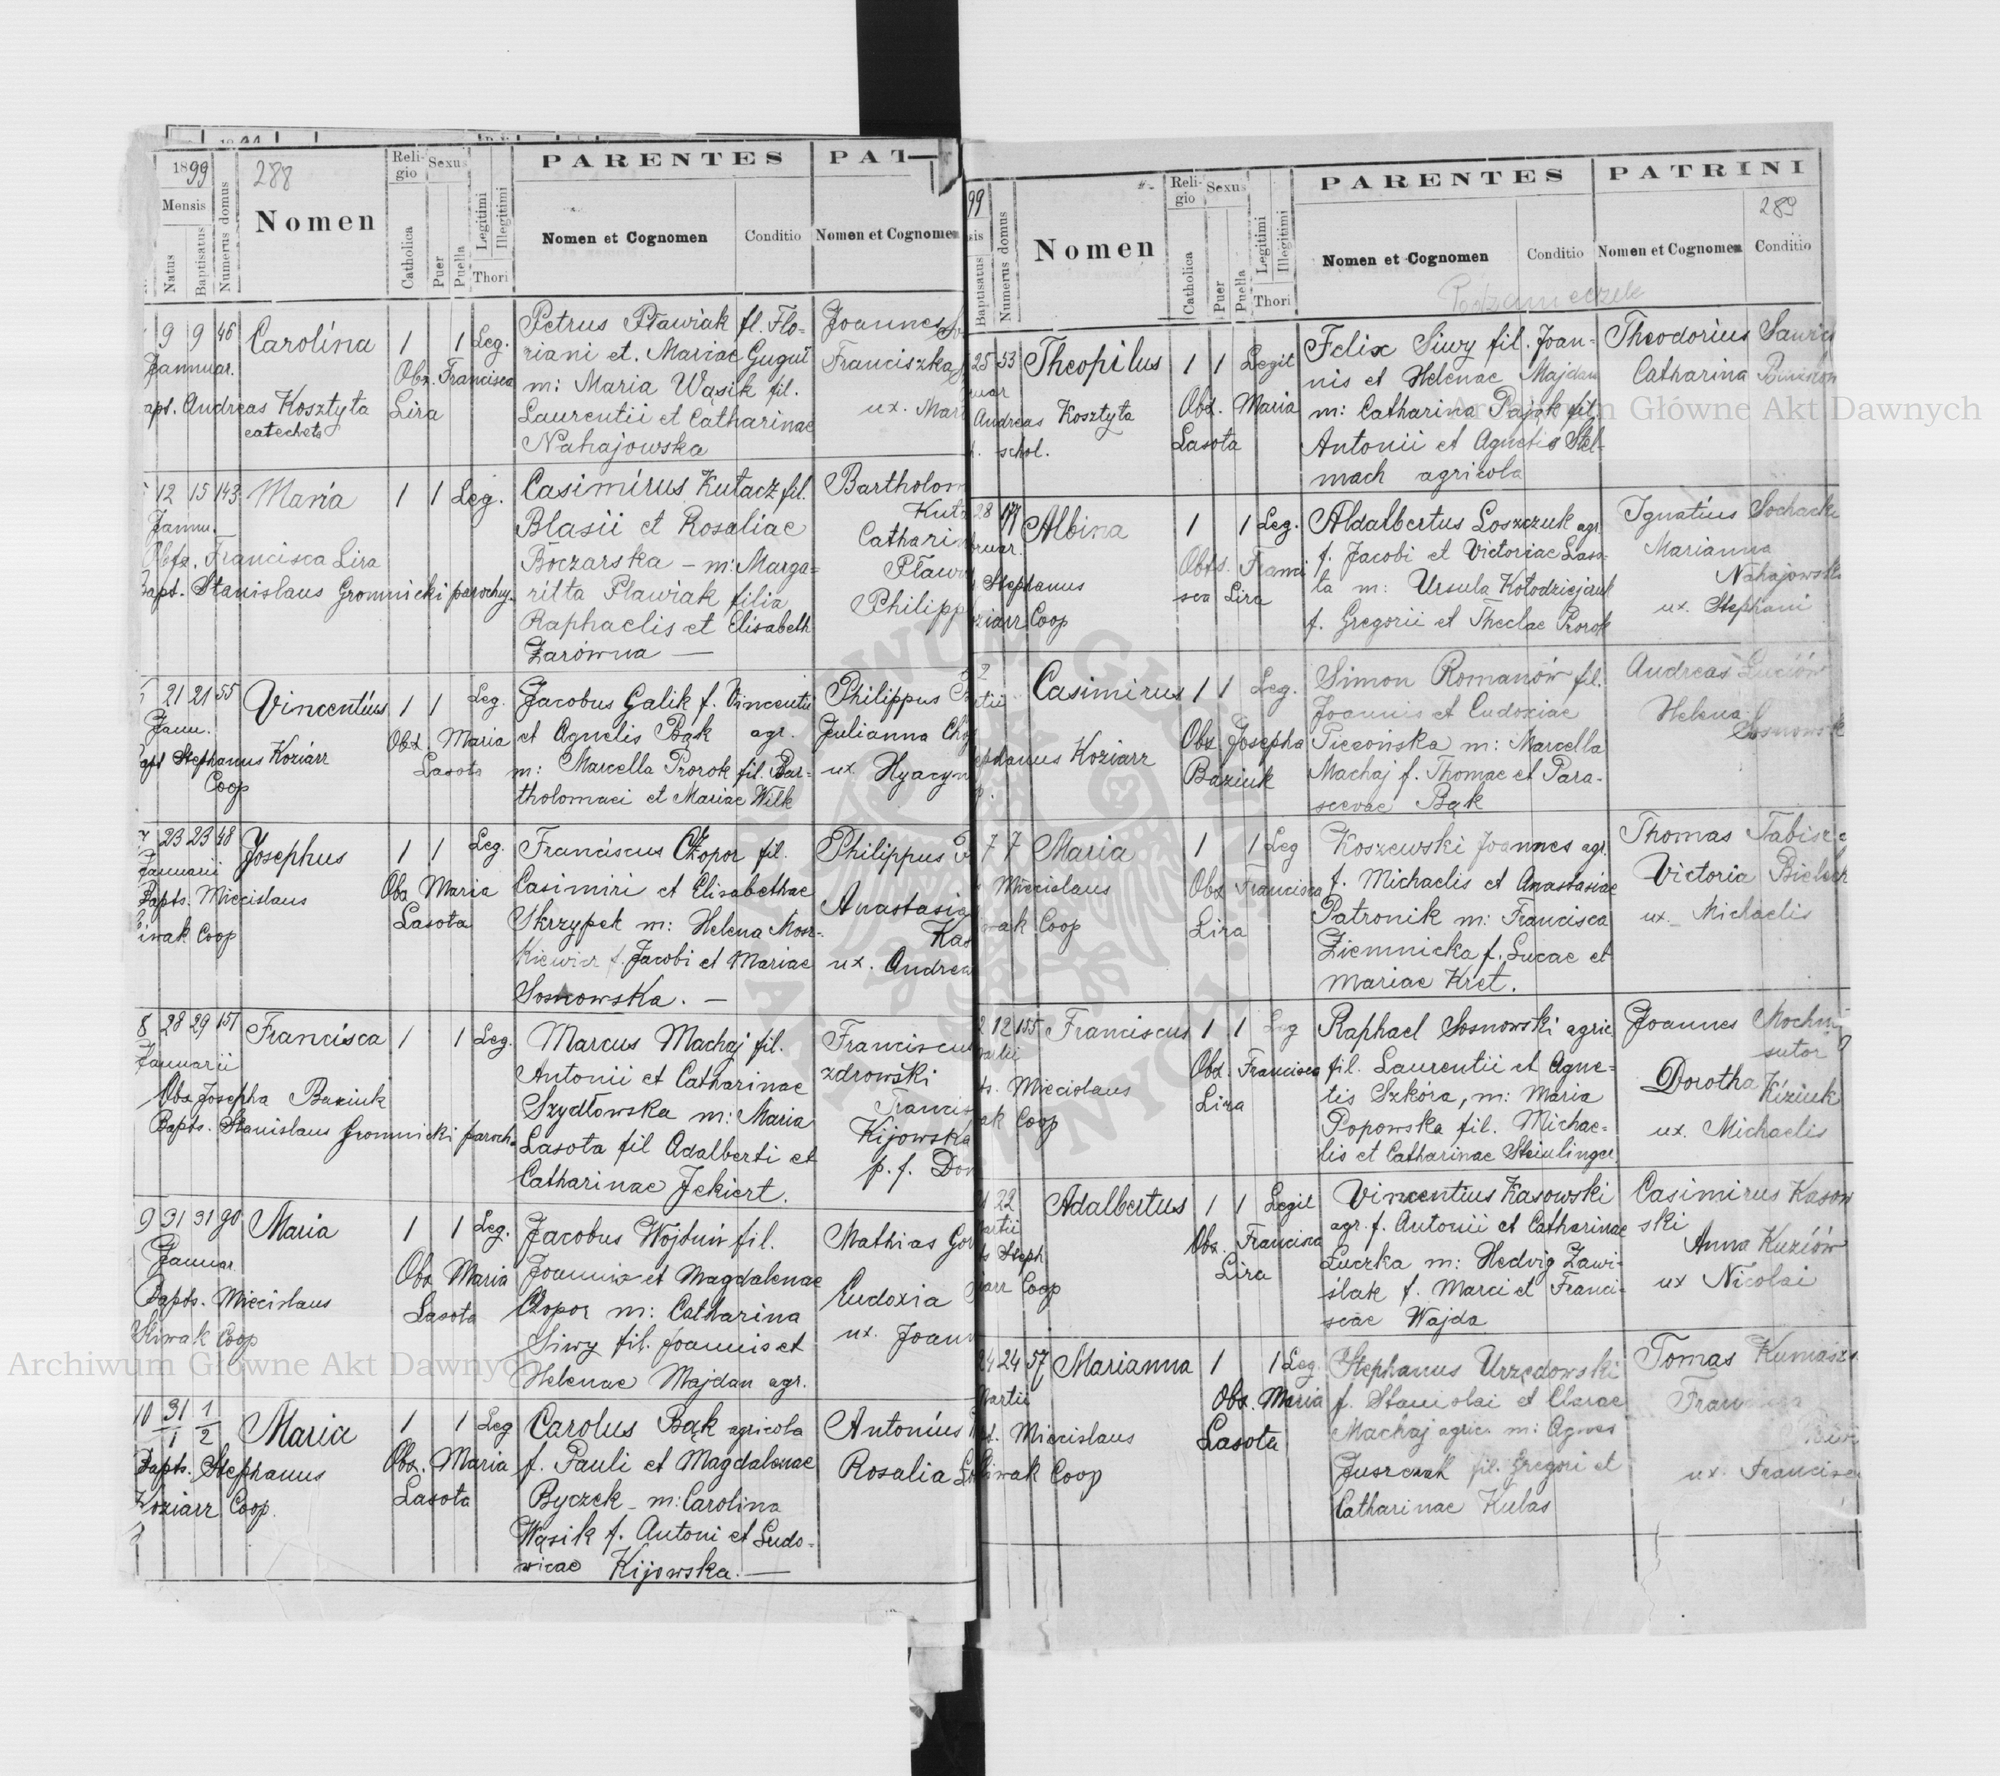 1899
288
Mensis
Natus
Baptisatus
Numerus domus
Nomen
Religio
Catholica
Sexus
Puer
Puella
Legitimi
Illegitimi
Thori
PARENTES
Nomen et Cognomen
Conditio
PAT
Nomen et Cognomen
9 9 46 Carolina 1 1 Leg.
Januar.
Obs. Francisca
Lira
apt. Andreas Kosztyła
catecheta
Petrus Pławiak fl. Flo-
riani et. Mariae Guguł
m: Maria Wąsik fil.
Laurentii et Catharinae
Nahajowska
Joannes
Franciszka
ux. Mar
12 15 143 Maria 1 1 Leg.
Jannu.
Obfs. Francisca Lira
Bapt. Stanislaus Gromnicki paroch.
Casimirus Kutacz fil.
Blasii et Rosaliae
Boczarska – m: Marga-
ritta Pławiak filia
Raphaelis et Elisabeth
Żarówna —
Bartholom
Kuta
Catharin
Pław
Philipp
21 21 55 Vincentius 1 1 Leg.
Janu.
Obst. Maria
Lasota
apt Stephanus Koziarr
Coop
Jacobus Galik f. Vincentii
et Agnetis Bąk agr.
m: Marcella Prorok fil. Bar-
tholomaei et Mariae Wilk
Philippus
Julianna
ux. Hyacyn
23 23 48 Josephus 1 1 Leg.
Januarii
Obs Maria
Lasota
Bapts. Miecislaus
iwak Coop
Franciscus Czopor fil.
Casimiri et Elisabethae
Skrzypek m: Helena Mosz-
kiewicz f. Jacobi et Mariae
Sosnowska. —
Philippus
Anastasia
Kas
ux. Andrea
8 28 29 151 Francisca 1 1 Leg.
Januarii
Obs Josepha Baziuk
Bapts. Stanislaus Gromnicki paroch.
Marcus Machaj fil.
Antonii et Catharinae
Szydłowska m: Maria
Lasota fil Adalberti et
Catharinae Jekiert.
Franciscus
zdrowski
Francis
Kijowska
p. f. Dom
9 31 31 90 Maria 1 1 Leg.
Januar
Obs Maria
Lasota
Bapts. Miecislaus
Sliwak Coop
Jacobus Wojtun fil.
Joannis et Magdalenae
Czopor m: Catharina
Siwy fil. Joannis et
Helenae Majdan agr.
Mathias
Eudoxia
ux. Joann
10 31/1 1/2 Maria 1 1 Leg
Obs. Maria
Lasota
Bapts. Stephanus
Koziarr Coop.
Carolus Bąk agricola
f. Pauli et Magdalenae
Byczek – m: Carolina
Wąsik f. Antoni et Ludo-
vicae Kijowska. —
Antonius
Rosalia
99
Baptisatus
Numerus domus
Nomen
Religio
Catholica
Sexus
Puer
Puella
Legitimi
Illegitimi
Thori
PARENTES
Nomen et Cognomen
Conditio
PATRINI
289
Nomen et Cognomen
Conditio
Podzameczek
25 53 Theopilus 1 1 Legit
uar
Obst. Maria
Lasota
Andreas Kosztyła
schol.
Felix Siwy fil. Joan-
nis et Helenae Majdan
m: Catharina Pająk fil.
Antonii et Agnetis Stel-
mach agricola
Theodorius
Catharina
28 Albina 1 1 Leg.
bruar.
Obfs. Franci
sca Lira
Stephanus
oziarr Coop
Aldalbertus Loszczuk agr.
f. Jacobi et Victoriae Laso-
ta m: Ursula Kołodziejczuk
f. Gregorii et Theclae Prorok
Ignatius Sochacki
Marianna
Nahajowska
ux. Stephani
Casimirus 1 1 Leg.
Obs Josepha
Baziuk
phanus Koziarr
Simon Romanów fil.
Joannis et Eudoxiae
m: Marcella
Machaj f. Thomae et Para-
scevae Bąk
Andreas
Helena
Sosnowsk
7 7 Maria 1 1 Leg
Obs Francisca
Lira
Miecislaus
wak Coop
Koszewski Joannes agr.
f. Michaelis et Anastasiae
Patronik m: Francisca
Ziemnicka f. Lucae et
Mariae Kret.
Thomas
Victoria
ux. Michaelis
12 155 Franciscus 1 1 Leg
artii
Obst. Francisca
Lira
ts. Miecislaus
ak Coop
Raphael Sosnowski agric
fil. Laurentii et Agne-
tis Szkóra, m: Maria
Popowska fil. Michae-
lis et Catharinae Steinlinger.
Joannes
sutor
Dorotha Kiziuk
ux. Michaelis
22 Adalbertus 1 1 Legit
artii
Obs. Francisca
Lira
Steph
iarr Coop
Vincentius Kasowski
agr. f. Antonii et Catharinae
Łuczka m: Hedvig Zawi-
ślak f. Marci et Franci-
scae Wajda
Casimirus Kasow
ski
Anna Kuziów
ux Nicolai
24 24 57 Marianna 1 1 Leg.
Martii
Obs. Maria
Lasota
Miecislaus
Sliwak Coop
Stephanus Urzędowski
f. Stanislai et Clarae
Machaj agric. m: Agnes
Juszczak fil. Gregori et
Catharinae Kulas
Tomas
ux. Francisci
Archiwum Główne Akt Dawnych
Archiwum Główne Akt Dawnych